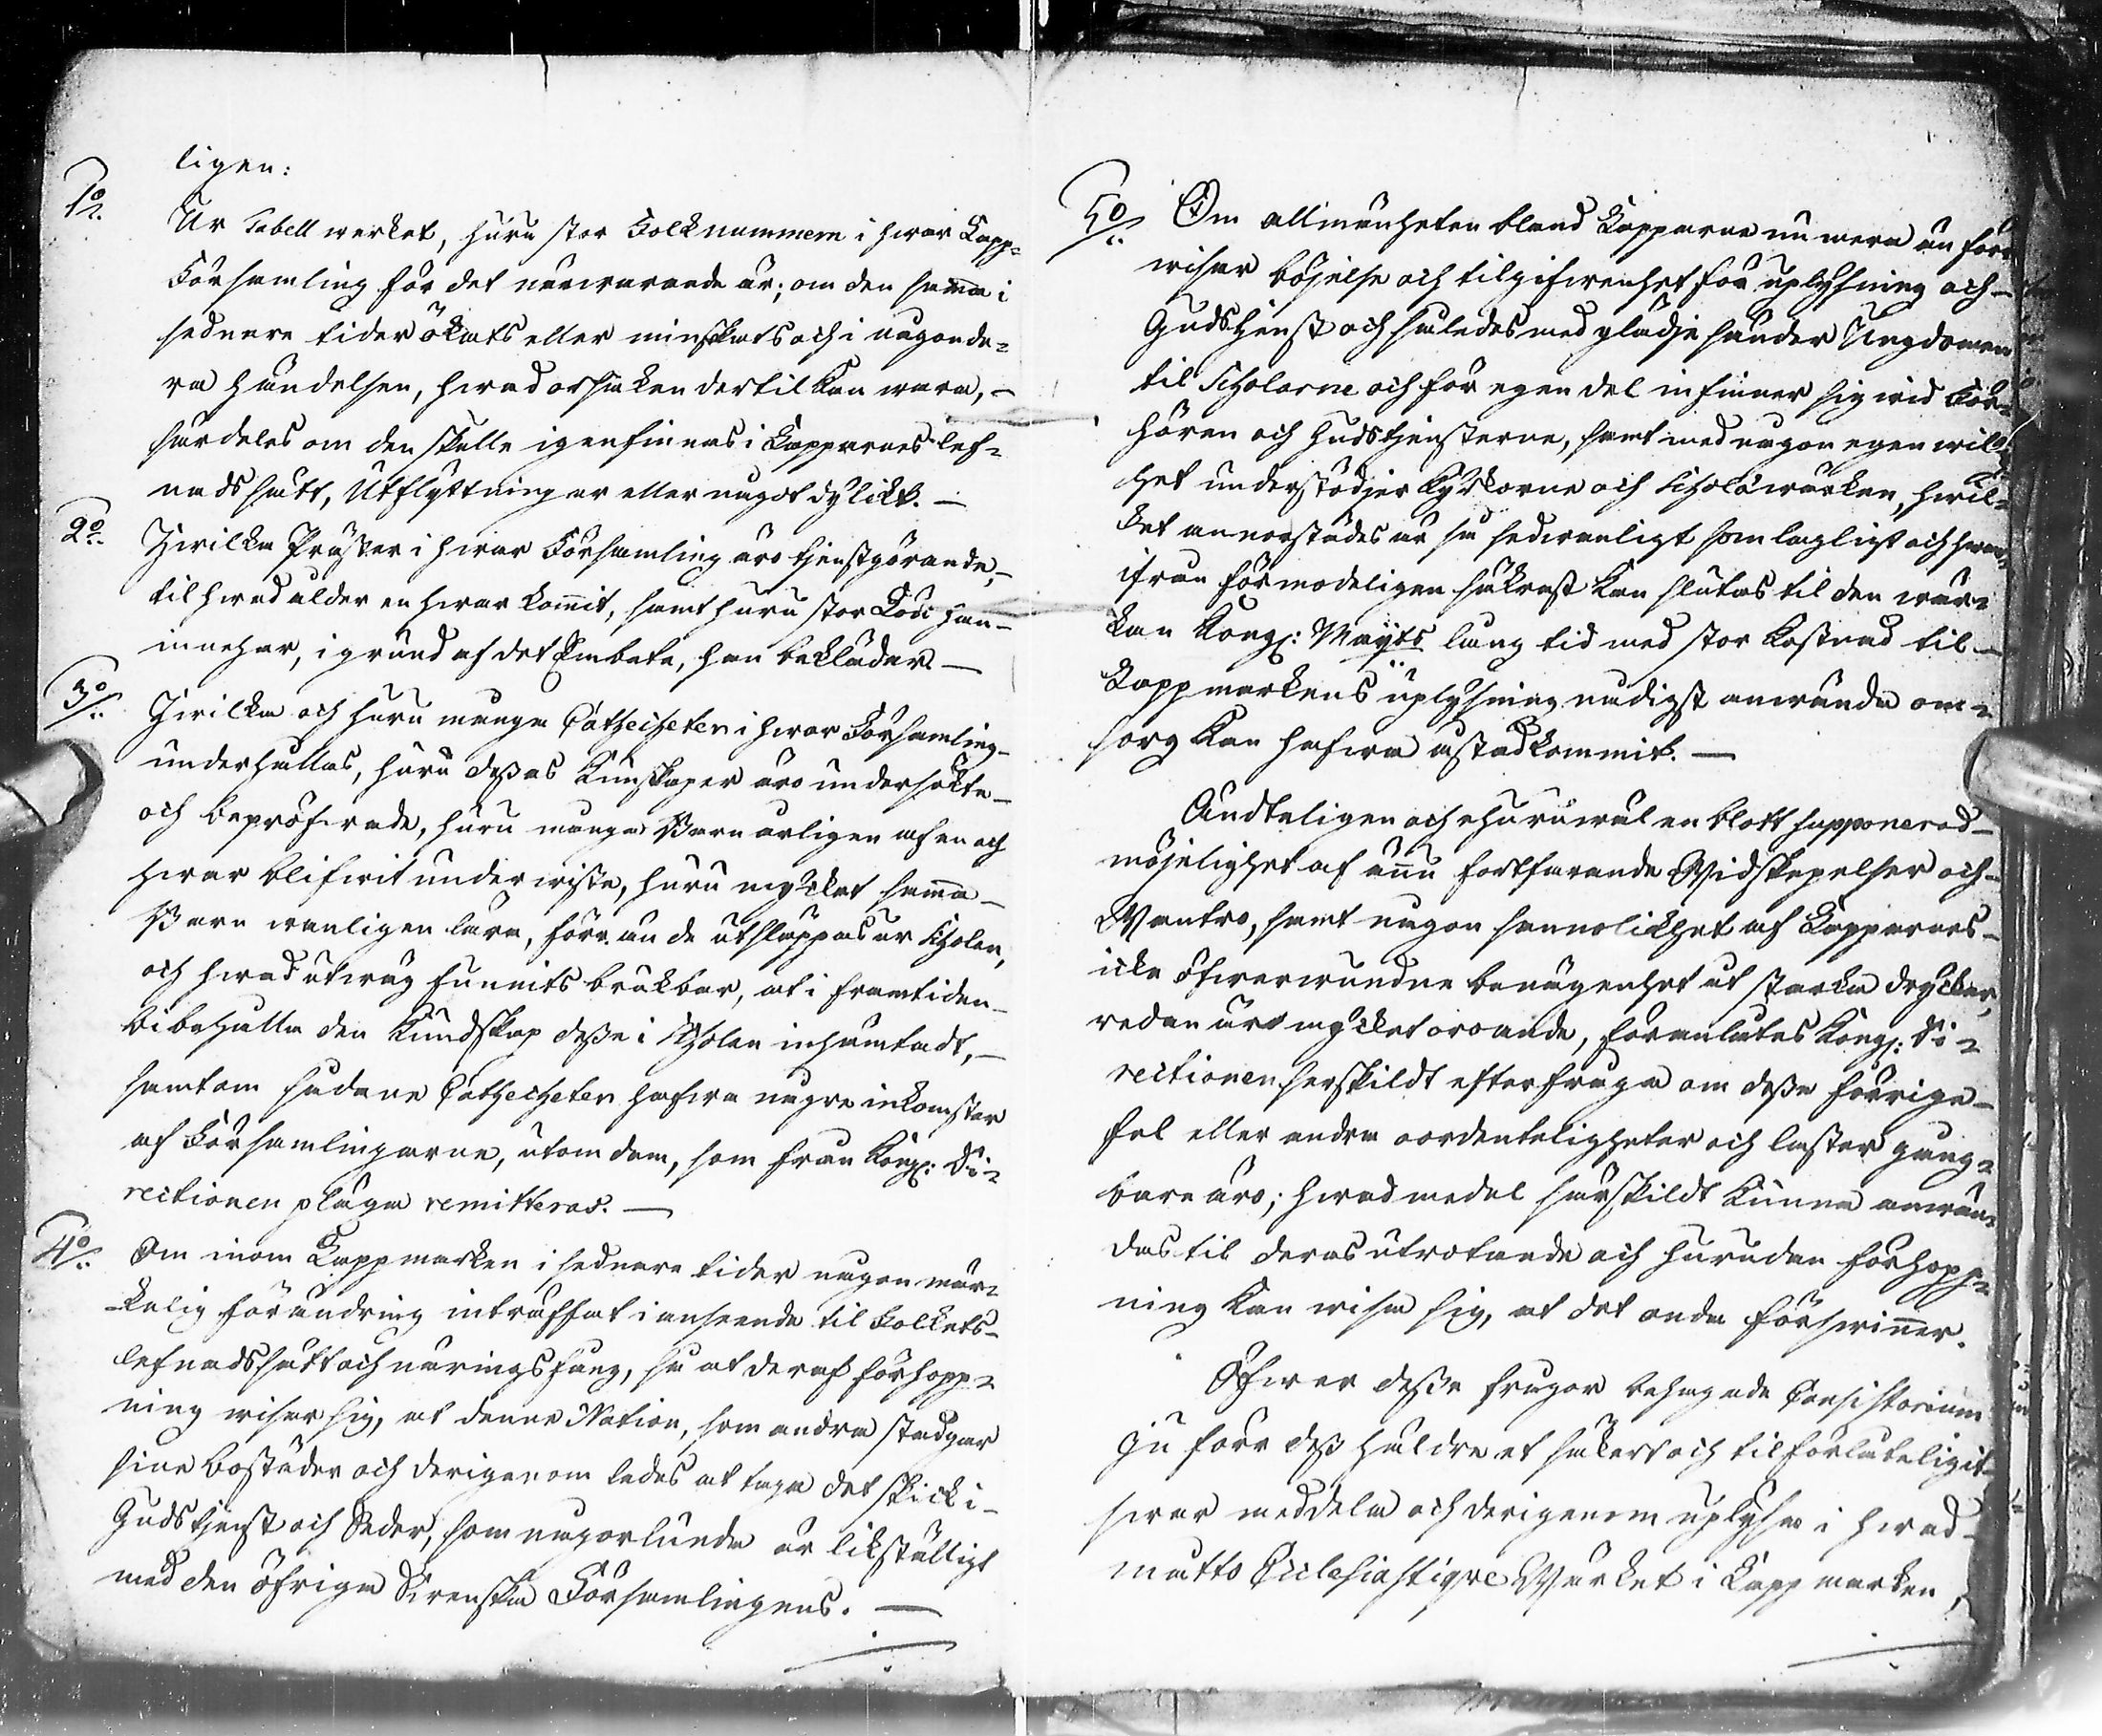 ligen:
1o. Ur Tabell werket, huru stor Folknummern i hwar Lapp-
Församling för det närwarande är; om den samma i
sednare tider ökats eller minskats och i någonde-
ra händelsen, hwad orsaken dertil kan wara, -
särdeles om den skulle igenfinnas i Lapparnes lef-
nads sätt, Utflyttningar eller något dylikt. -
2o. Hwilka Präster i hwar Församling äro tjenstgörande, -
til hwad ålder en hwar kommit, samt huru stor Lön han -
innehar, i grund af det Embete, han bekläder. -
3o. Hwilka och huru många Cathecheter i hwar Församling -
underhållas, huru dessas Kunskaper äro undersökte -
och bepröfwade, huru många Barn årligen af en och
hwar blifwit underwiste, huru mycket samma -
Barn wanligen lära, förr än de utsläppas ur Scholan,
och hwad utwäg funnits brukbar, at i framtiden -
bibehålla den Kundskap desse i Scholan inhämtadt, -
samt om sådane Catecheter hafwa några inkomster
af Församlingarne, utom dem, som från Kongl: Di-
rectionen pläga remitteras. -
4o. Om inom Lappmarken i sednare tider någon mär-
kelig förändring inträffat i anseende til Folkets -
lefnadssätt och näringsfång, så at deraf förhopp-
ning wisar sig, at denne Nation, som andra stadgar
sine bostäder och derigenom ledes at taga det skick i -
Gudstjenst och Seder, som någorlunda är likställigt
med den öfriga Swenska Församlingens. -
5o. Om allmänheten bland Lapparne nu mera än förr
wisar böjelse och tilgifwenhet för uplysning och -
Gudstjenst och således med glädje sänder Ungdomen
til Scholarne och för egen del infinner sig wid För-
hören och Gudstjensterne, samt med någon egen wil-
het understödjer Kyrkorne och Scholäwärken, hwil-
ket annorstädes är så sedwanligt som lagligt och hwar-
ifrån förmodeligen säkrast kan slutas til den wär-
kan Kongl: Maijts lång tid med stor kostnad til -
Lappmarkens uplysning nådigst anwända om-
sorg kan hafwa åstadkommit. -
Ändteligen och ehuruwäl en blott supponerad -
möjelighet af ännu fortfarande Widskepelser och -
Wantro, samt någon sannolikhet af Lapparnes -
icke öfwerwundne benägenhet åt starka drycker,
redan äro mycket oroande, föranlåtes Kongl: Di-
rectionen serskildt efterfråga om desse förrige -
fel eller andra oordenteligheter och laster gång-
bare äro; hwad medel särskildt kunna anwän-
das til deras utrotande och huruden förhopp-
ning kan wisa sig, at det onda förswinner.
Öfwer desse frågor behagade Consistorium
ju förr dess häldre et säkert och tilförlåteligit
swar meddela och derigenom uplysa i hwad -
måtto Ecclesiastique Wärket i Lappmarken,